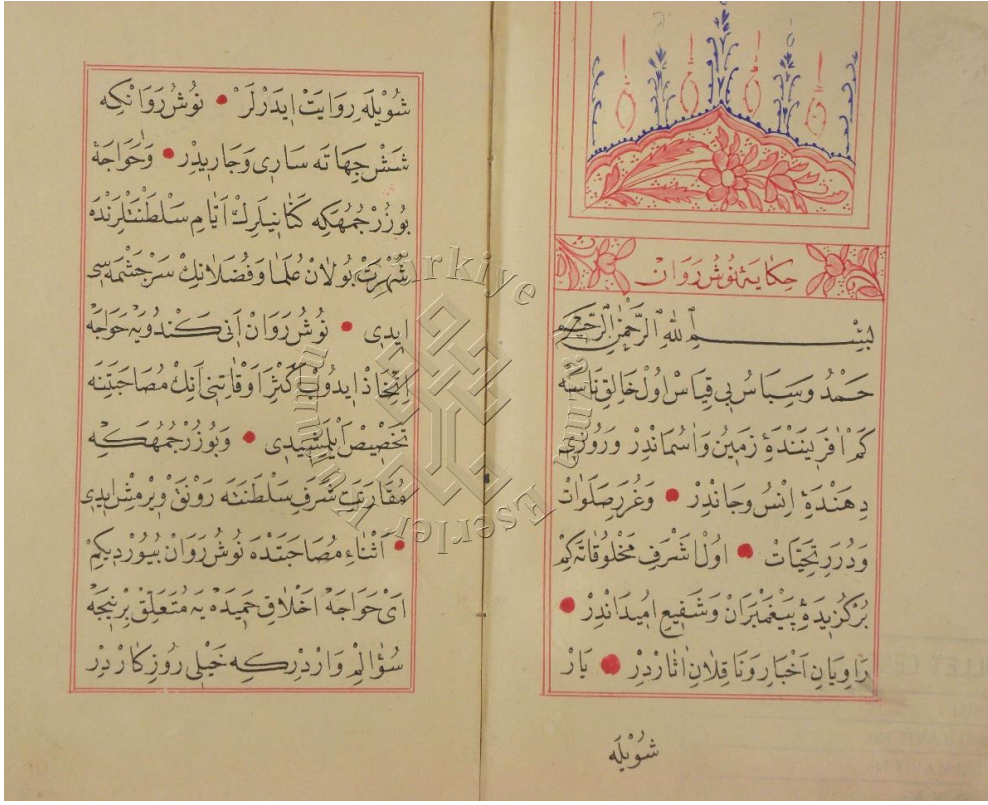 حكايۀ نُوشُرَوَانْ
بِسْمِ اللهِ الرَّحْمٰنِ الرَّحِيمِ
حَمْدُ وَسِپَاسُ بِي قِيَاسْ اُولْ خَالِقِ نَاسَه
كِمْ اٰفَرِينَنْدَۀِ زَمِينُ وَاٰسُمَانْدِرْ وَرُوزِي
دِهَنْدَۀِ اِنْسُ وجَانْدِرْ • وَغُرَرِ صَلَوَاتْ
وَدُرَرِ تَحِيَّاتْ • اُولْ اَشْرَفِ مَخْلُوقَاتَه كِمْ
بُرْكُزِيدَۀِ پَيْغَمْبَرَانْ وَشَفِيعِ اُمِيدَانْدِرْ •
رَاوِيَانِ اَخْبَارِ وَنَاقِلَانِ اٰثَارْدِرْ • يَارْ
شُوْيْلَه
شُوْيْلَه رِوَايَتْ اِيدَرْلَرْ • نُوشُرَوَانْكِه
شَشْ جِهَاتَه سَارِي وَجَارِيدِرْ • وَخَوَاجَۀ
بُوزُرْجُمُهَكِه كَتَانِيلَرِكْ اَيَّامِ سَلْطَنَتْلَرِنْدَه
شُهْرَتْ بُولَانْ عُلَمَا وَفُضَلَانِكْ سَرْچَشْمَه سِي
اِيدِي • نُوشُرَوَانْ اَنِي كَنْدُويَه خَوَاجَه
اِتِّخَاذْ اِيدُوبْ اَكْثَرِ اَوْقَاتِنِي اَنِكْ مُصَاحَبَتِنَه
تَخْصِيصْ اَيْلَمِشِيدِي • وَبُوزُرْجُمُهَكِه
مُقَارَنَتِ شَرَفِ سَلْطَنَتَه رَوْنَقْ وِيرْمِشْ اِيدِي
• اَثْنَاءِ مُصَاحَبَتْدَه نُوشُرَوَانْ بُيُورْدِيكِمْ
اَىْ خَوَاجَه اَخْلَاقِ حَمِيدَه يَه مُتَعَلِّقْ بِرْنِيجَه
سُؤَالِمْ وَارْدِرْكِه خَيْلِي رُوزِكَارْدِرْ